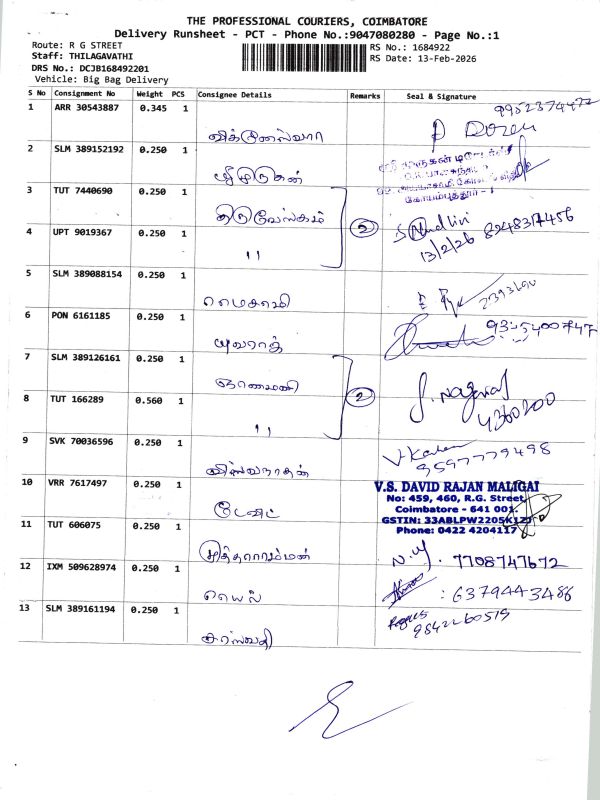 THE PROFESSIONAL COURIERS, COIMBATORE
Delivery Runsheet - PCT - Phone No.:9047080280 - Page No.:1
Route: R G STREET
Staff: THILAGAVATHI
DRS No.: DCJB168492201
Vehicle: Big Bag Delivery
RS No.: 1684922
RS Date: 13-Feb-2026
S No Consignment No Weight PCS Consignee Details Remarks Seal & Signature
1 ARR 30543887 0.345 1
2 SLM 389152192 0.250 1
ஸ்ரீ முருகன்
3 TUT 7440690 0.250 1
திருவேங்கடம்
4 UPT 9019367 0.250 1
" 2 S Nandhini 8248317456
13/2/26
5 SLM 389088154 0.250 1
6 PON 6161185 0.250 1
யுவராஜ்
7 SLM 389126161 0.250 1
ஞானமணி
8 TUT 166289 0.560 1
" 2
9 SVK 70036596 0.250 1
9597779498
விஸ்வநாதன்
10 VRR 7617497 0.250 1
டேவிட்
V.S. DAVID RAJAN MALIGAI
No: 459, 460, R.G. Street,
Coimbatore - 641 001.
GSTIN: 33ABLPW2205K1ZJ
Phone: 0422 4204117
11 TUT 606075 0.250 1
முத்தாரம்மன் 7708747672
12 IXM 509628974 0.250 1
6379443486
13 SLM 389161194 0.250 1
9842260519
சரஸ்வதி